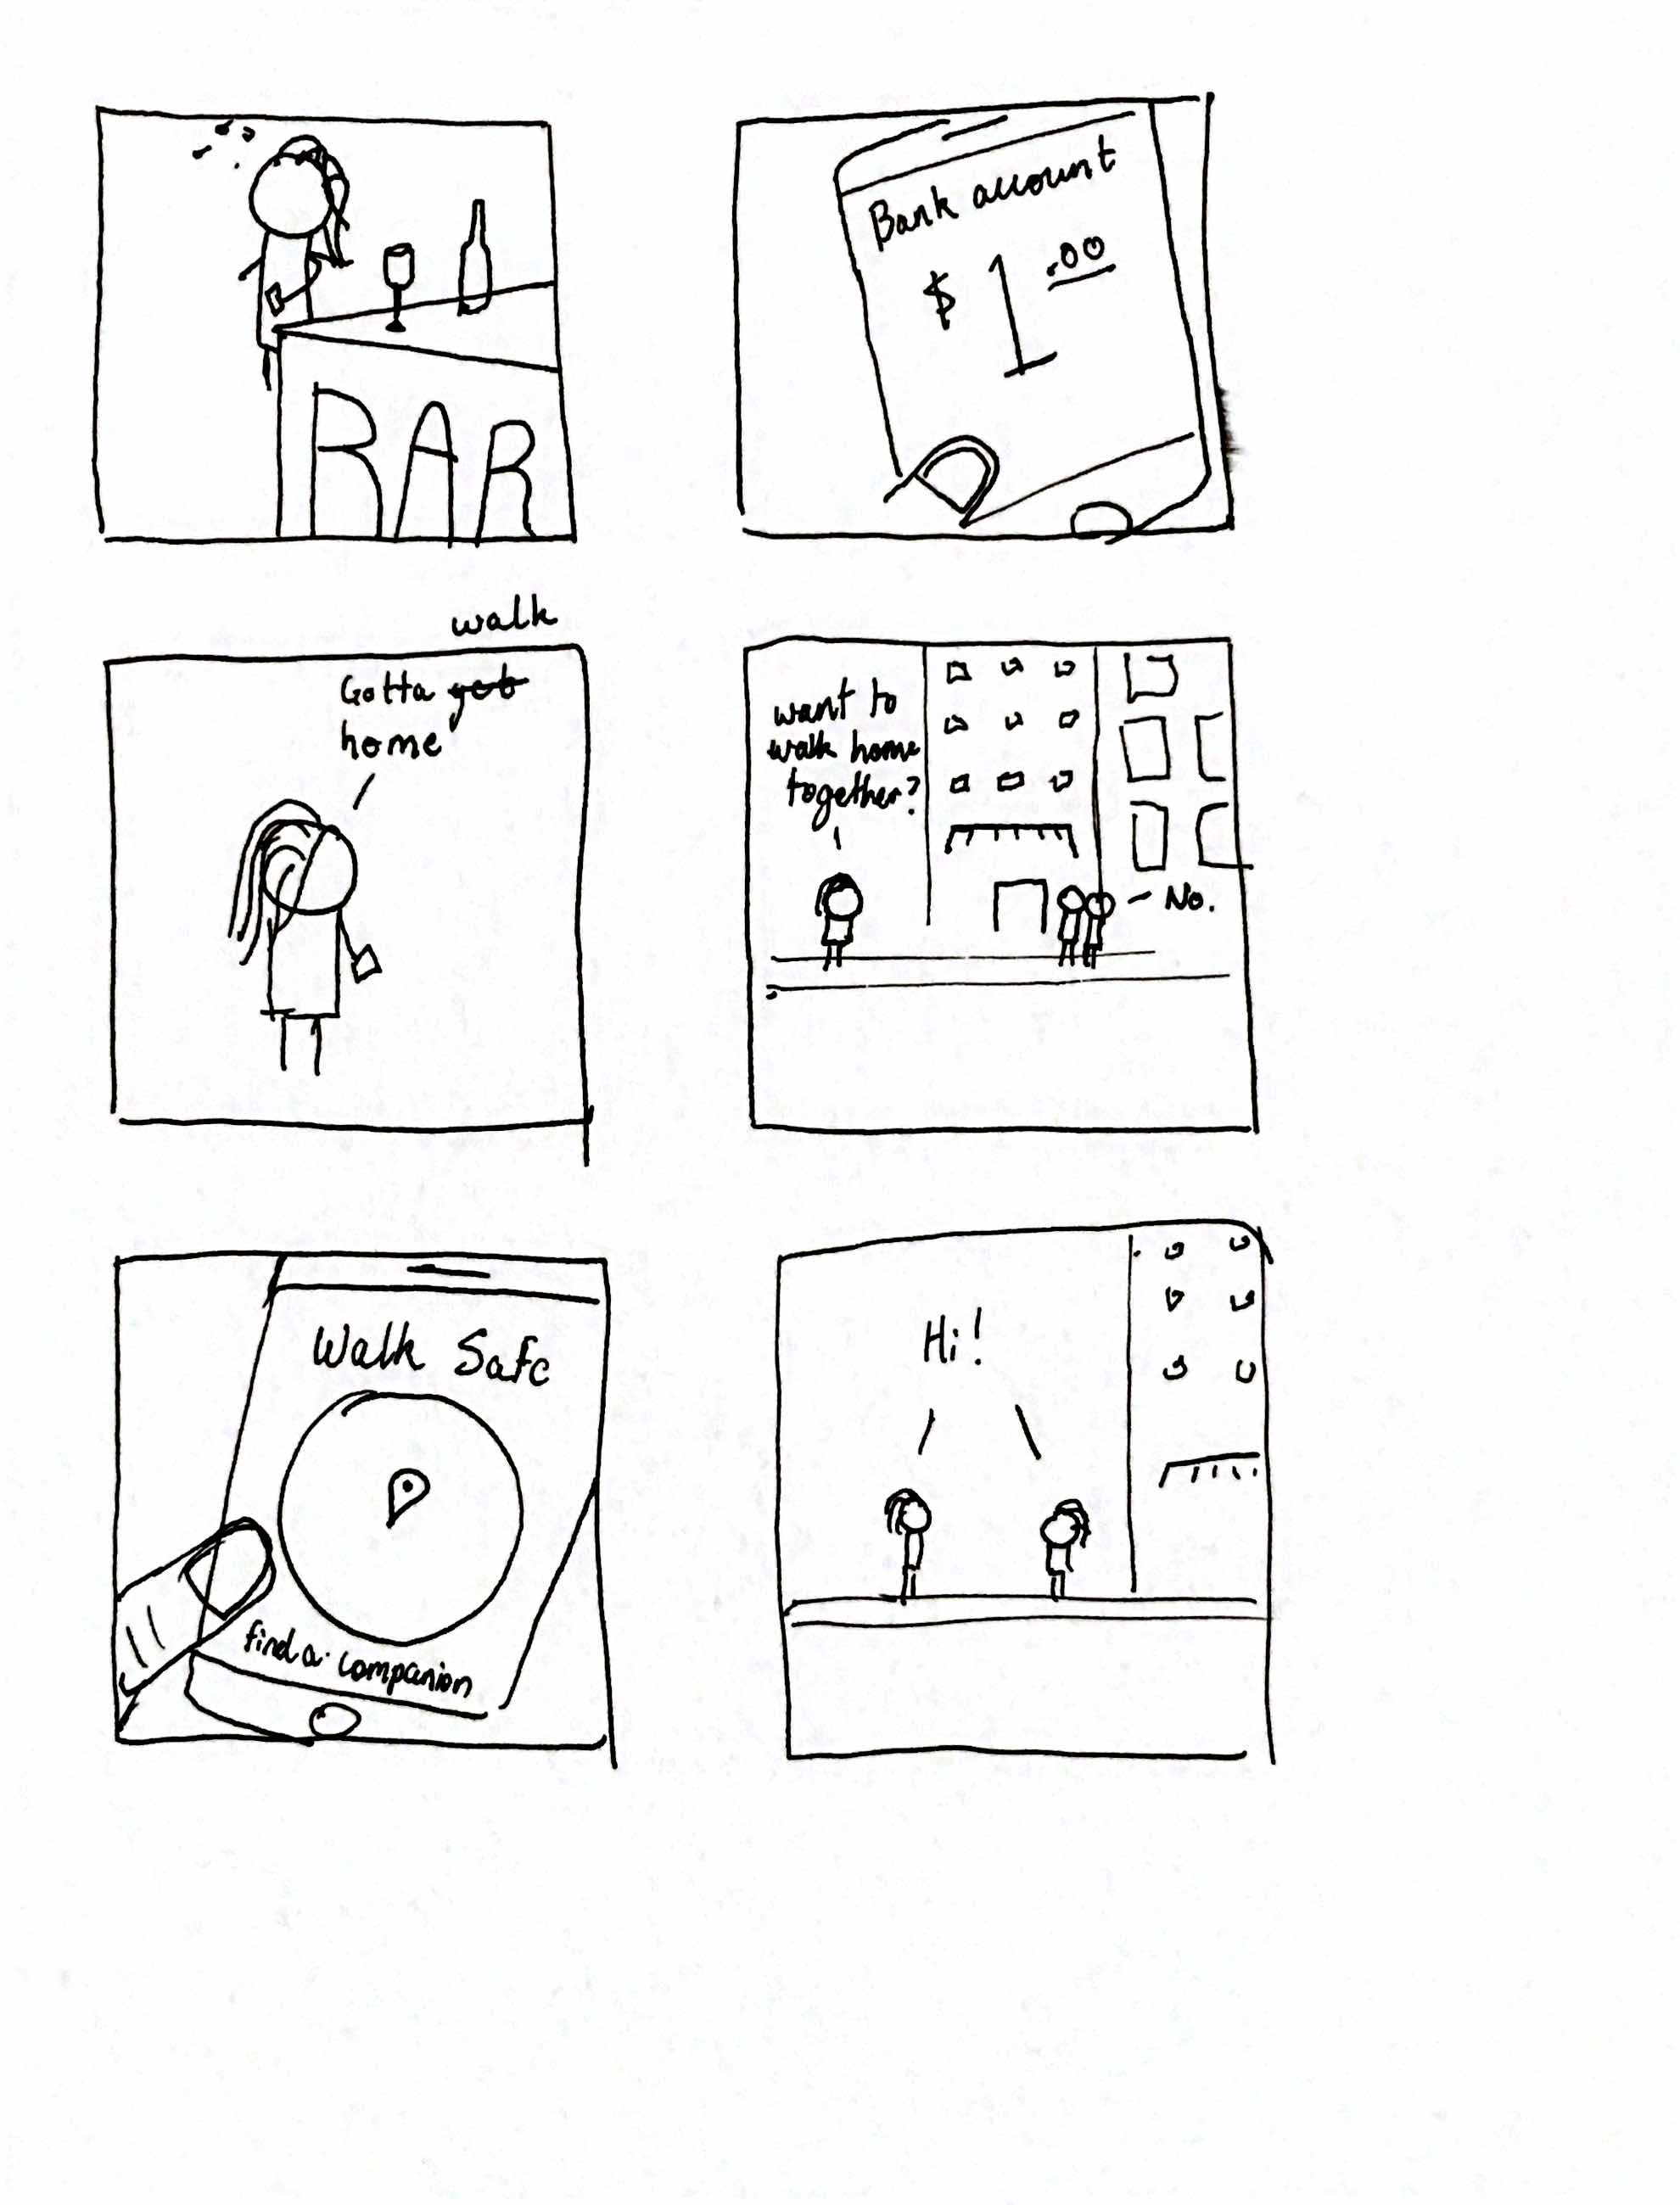 BAR
Bank account
$ 1 .00
walk
Gotta get
home
want to
walk home
together?
No.
Walk Safe
find a companion
Hi!